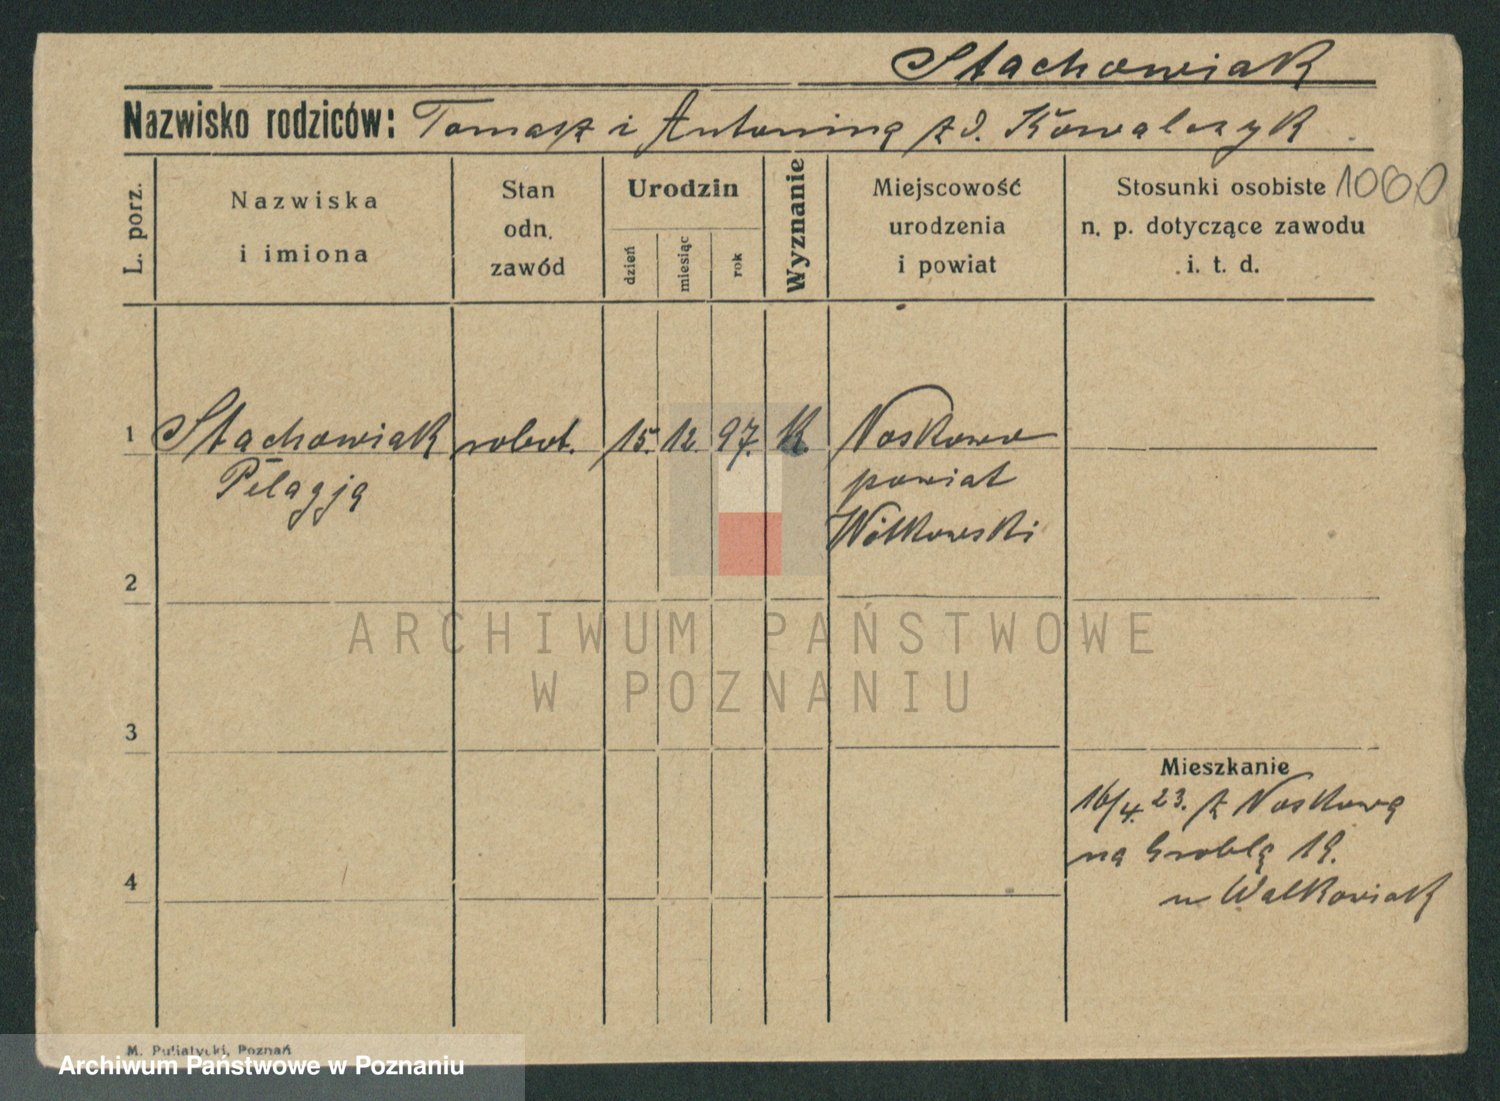 Stachowiak
Nazwisko rodziców: Tomasz i Antonina z d. Kowalczyk
L. porz.
Nazwiska
i imiona
Stan
odn.
zawód
Urodzin
dzień
miesiąc
rok
Wyznanie
Miejscowość
urodzenia
i powiat
Stosunki osobiste 1000
n. p. dotyczące zawodu
i. t. d.
1 Stachowiak robot. 15. 12. 97. K. Noskowo
Pelagja powiat
Witkowski
2
ARCHIWUM PAŃSTWOWE
W POZNANIU
3
Mieszkanie
16/4. 23. z Noskowa
na Groblą 19.
u Walkowiak
4
M. Putiatycki, Poznań
Archiwum Państwowe w Poznaniu